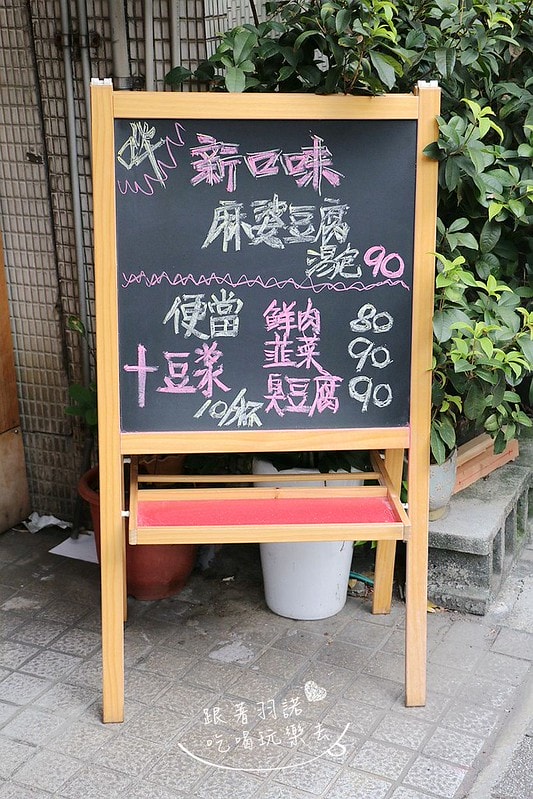 新口味
麻婆豆腐
湯包90
便當 鮮肉 80
十豆漿 韭菜 90
10/杯 臭豆腐 90
跟著羽諾
吃喝玩樂去